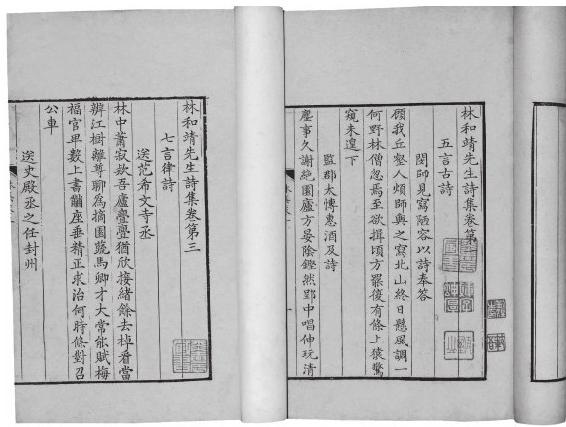 林和靖先生詩集卷第
五言古詩
閔師見寫陋容以詩奉答
顧我丘壑人煩師與之寫北山終日懸風調一
何野林僧忽焉至欲揖頃方罷復有條上猿驚
窺未遑下
監郡太博惠酒及詩
塵事久謝絕園廬方晏陰鏗然郢中唱伸玩清
林和靖先生詩集卷第三
七言律詩
送范希文寺丞
林中蕭寂款吾廬亹亹猶欣接緒餘去棹看當
辨江樹離尊聊爲摘園蔬馬卿才大常能賦梅
福官卑數上書黼座垂精正求治何時條對召
公車
送史殿丞之任封州